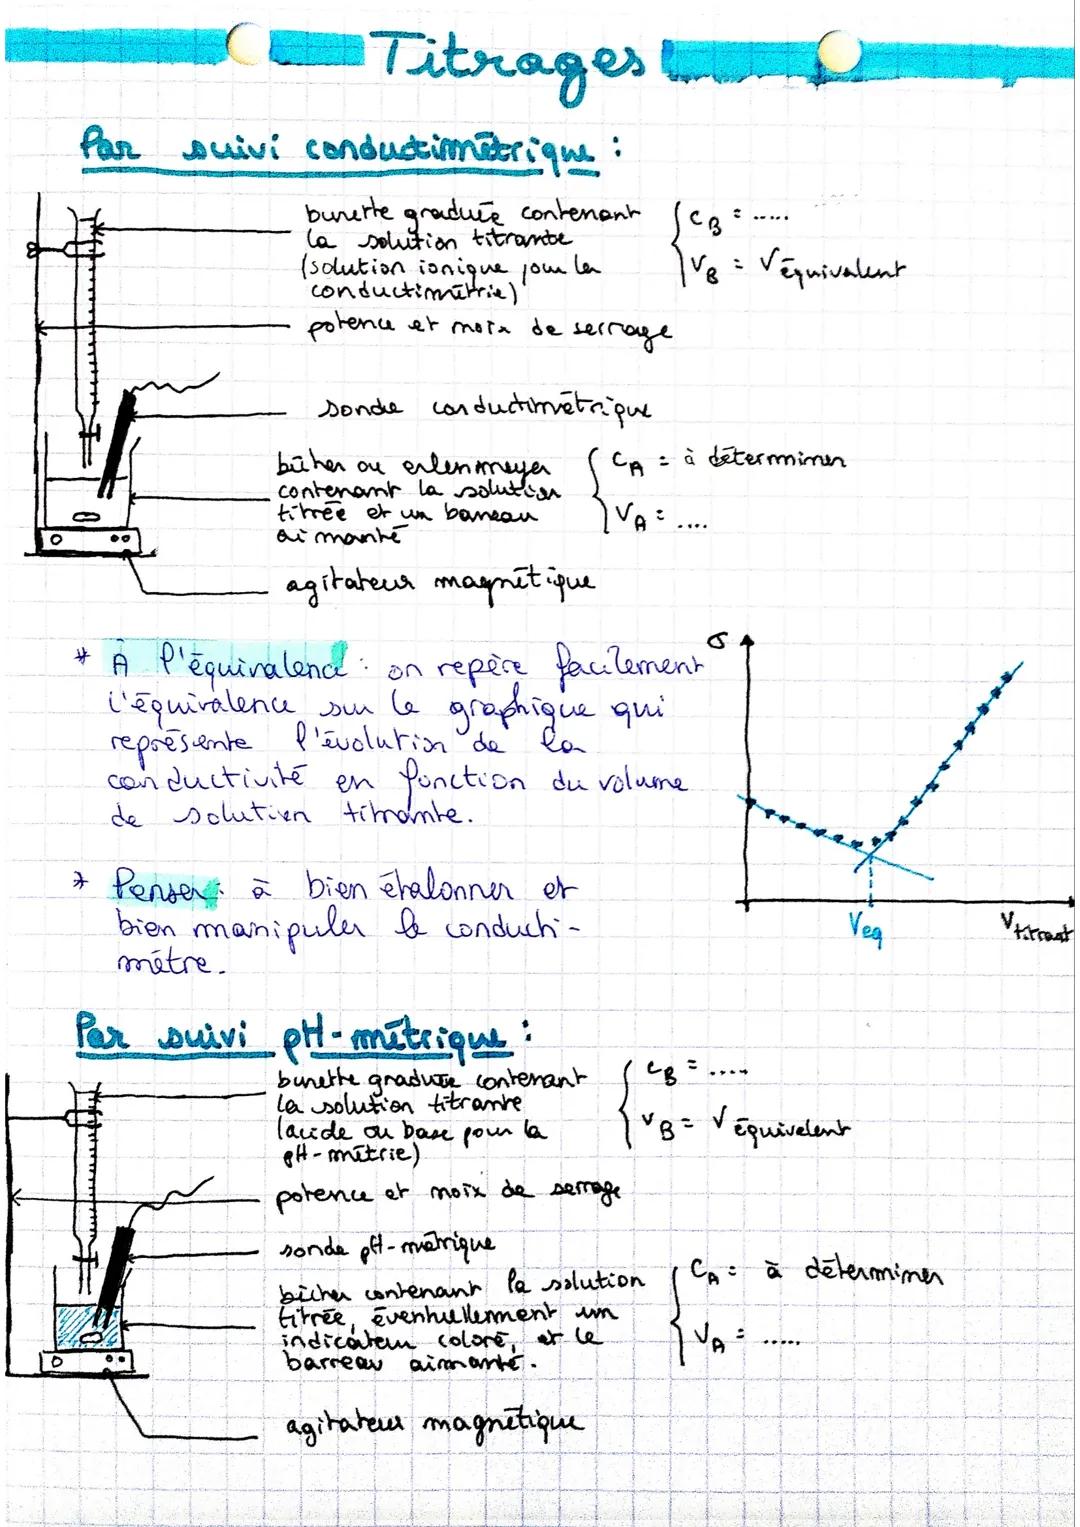 Titrages
Par suivi conductimétrique :
burette graduée contenant
la solution titrante
(solution ionique pour la
conductimétrie)
C_B = .....
V_B = V équivalent
potence et noix de serrage
sonde conductimétrique
bécher ou erlenmeyer
contenant la solution
titrée et un barreau
aimanté
C_A = à déterminer
V_A = ....
agitateur magnétique
* À l'équivalence : on repère facilement
l'équivalence sur le graphique qui
représente l'évolution de la
conductivité en fonction du volume
de solution titrante.
σ
Veq
V titrant
* Penser : à bien étalonner et
bien manipuler le conducti-
mètre.
Par suivi pH-métrique :
burette graduée contenant
la solution titrante
(acide ou base pour la
pH-métrie)
C_B = ....
V_B = V équivalent
potence et noix de serrage
sonde pH-métrique
bécher contenant la solution
titrée, éventuellement un
indicateur coloré, et le
barreau aimanté.
C_A = à déterminer
V_A = .....
agitateur magnétique